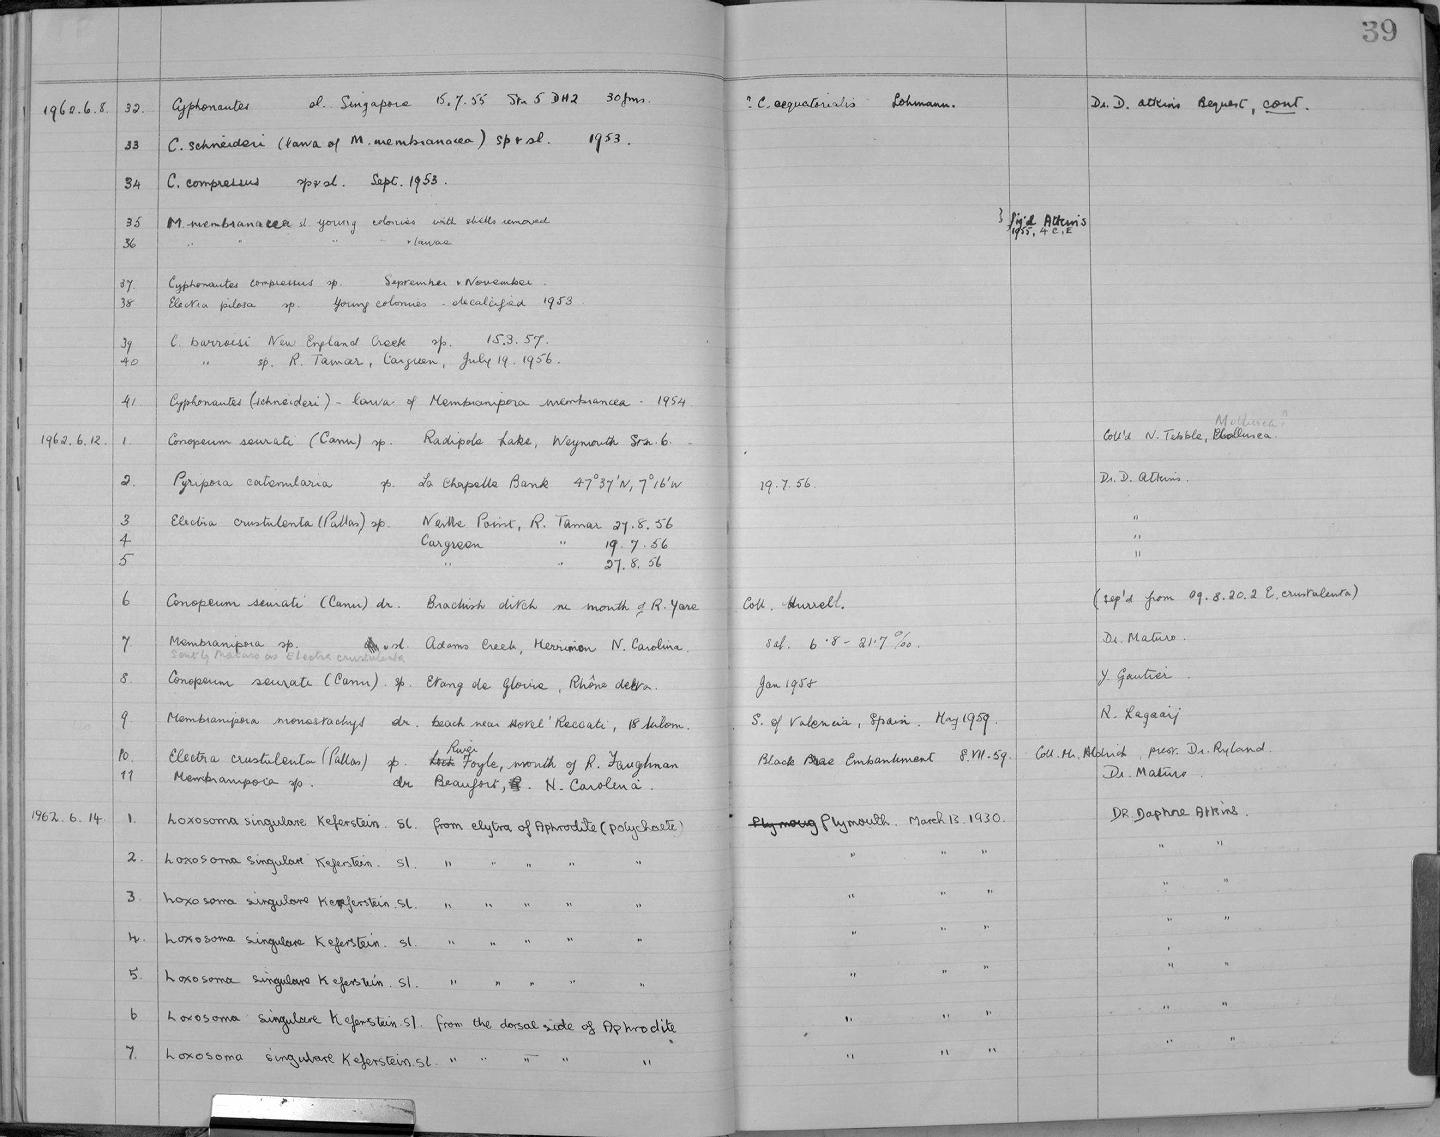 39
1962.6.8. 32. Cyphonautes sl. Singapore 15.7.55 Stn 5 DH2 30 fms. ? C. aequatorialis Lohmann. Dr. D. Atkins Bequest, cont.
33 C. schneideri (larva of M. membranacea) sp & sl. 1953.
34 C. compressus sp & sl. Sept. 1953.
35 M. membranacea sl. young colonies with shells removed } fig'd Atkins
36 " " " " + larvae 1955, 4 C, E
37 Cyphonautes compressus sp. September & November.
38 Electra pilosa sp. Young colonies - decalcified 1953.
39 C. barroisi New England Creek sp. 15.3.57.
40 " sp. R. Tamar, Cargreen, July 19. 1956.
41 Cyphonautes (schneideri) - larva of Membranipora membranacea - 1954
Mollusca?
1962.6.12. 1. Conopeum seurati (Canu) sp. Radipole Lake, Weymouth Stn. 6. Coll'd N. Tebble,
2. Pyripora catenularia sp. La Chapelle Bank 47°37'N, 7°16'W 19.7.56. Dr. D. Atkins.
3 Electra crustulenta (Pallas) sp. Neville Point, R. Tamar 27.8.56 "
4 Cargreen " 19.7.56 "
5 " " 27.8.56 "
6 Conopeum seurati (Canu) dr. Brackish ditch nr mouth of R. Yare Coll. Hurrell. (sep'd from 09.8.20.2 E. crustulenta)
7 Membranipora sp. sl. Adams Creek, Herrimon N. Carolina. sal. 6.8 - 21.7 ‰. Dr. Maturo.
Sent by Maturo as Electra crustulenta
8 Conopeum seurati (Canu). sp. Etang de Gloria, Rhône delta. Jan 1958 Y. Gautier.
9 Membranipora monostachys dr. beach near Hotel 'Recati, 18 kilom. S. of Valencia, Spain. May 1959. R. Lagaaij
River
10. Electra crustulenta (Pallas) sp. Foyle, mouth of R. Faughnan Black Brae Embankment 8.VII.59. Coll. Mr. Aldrich, pres. Dr. Ryland.
11 Membranipora sp. dr Beaufort, N. Carolina. Dr. Maturo.
1962.6.14. 1. Loxosoma singulare Keferstein. Sl. from elytra of Aphrodite (polychaete) Plymouth. March 13. 1930. DR. Daphne Atkins.
2. Loxosoma singulare Keferstein. Sl. " " " " " " " " " "
3. Loxosoma singulare Keferstein. Sl. " " " " " " " " " "
4. Loxosoma singulare Keferstein. Sl. " " " " " " " " " "
5. Loxosoma singulare Keferstein. Sl. " " " " " " " " " "
6 Loxosoma singulare Keferstein. Sl. from the dorsal side of Aphrodite " " " " "
7. Loxosoma singulare Keferstein. Sl. " " " " " " " " " "